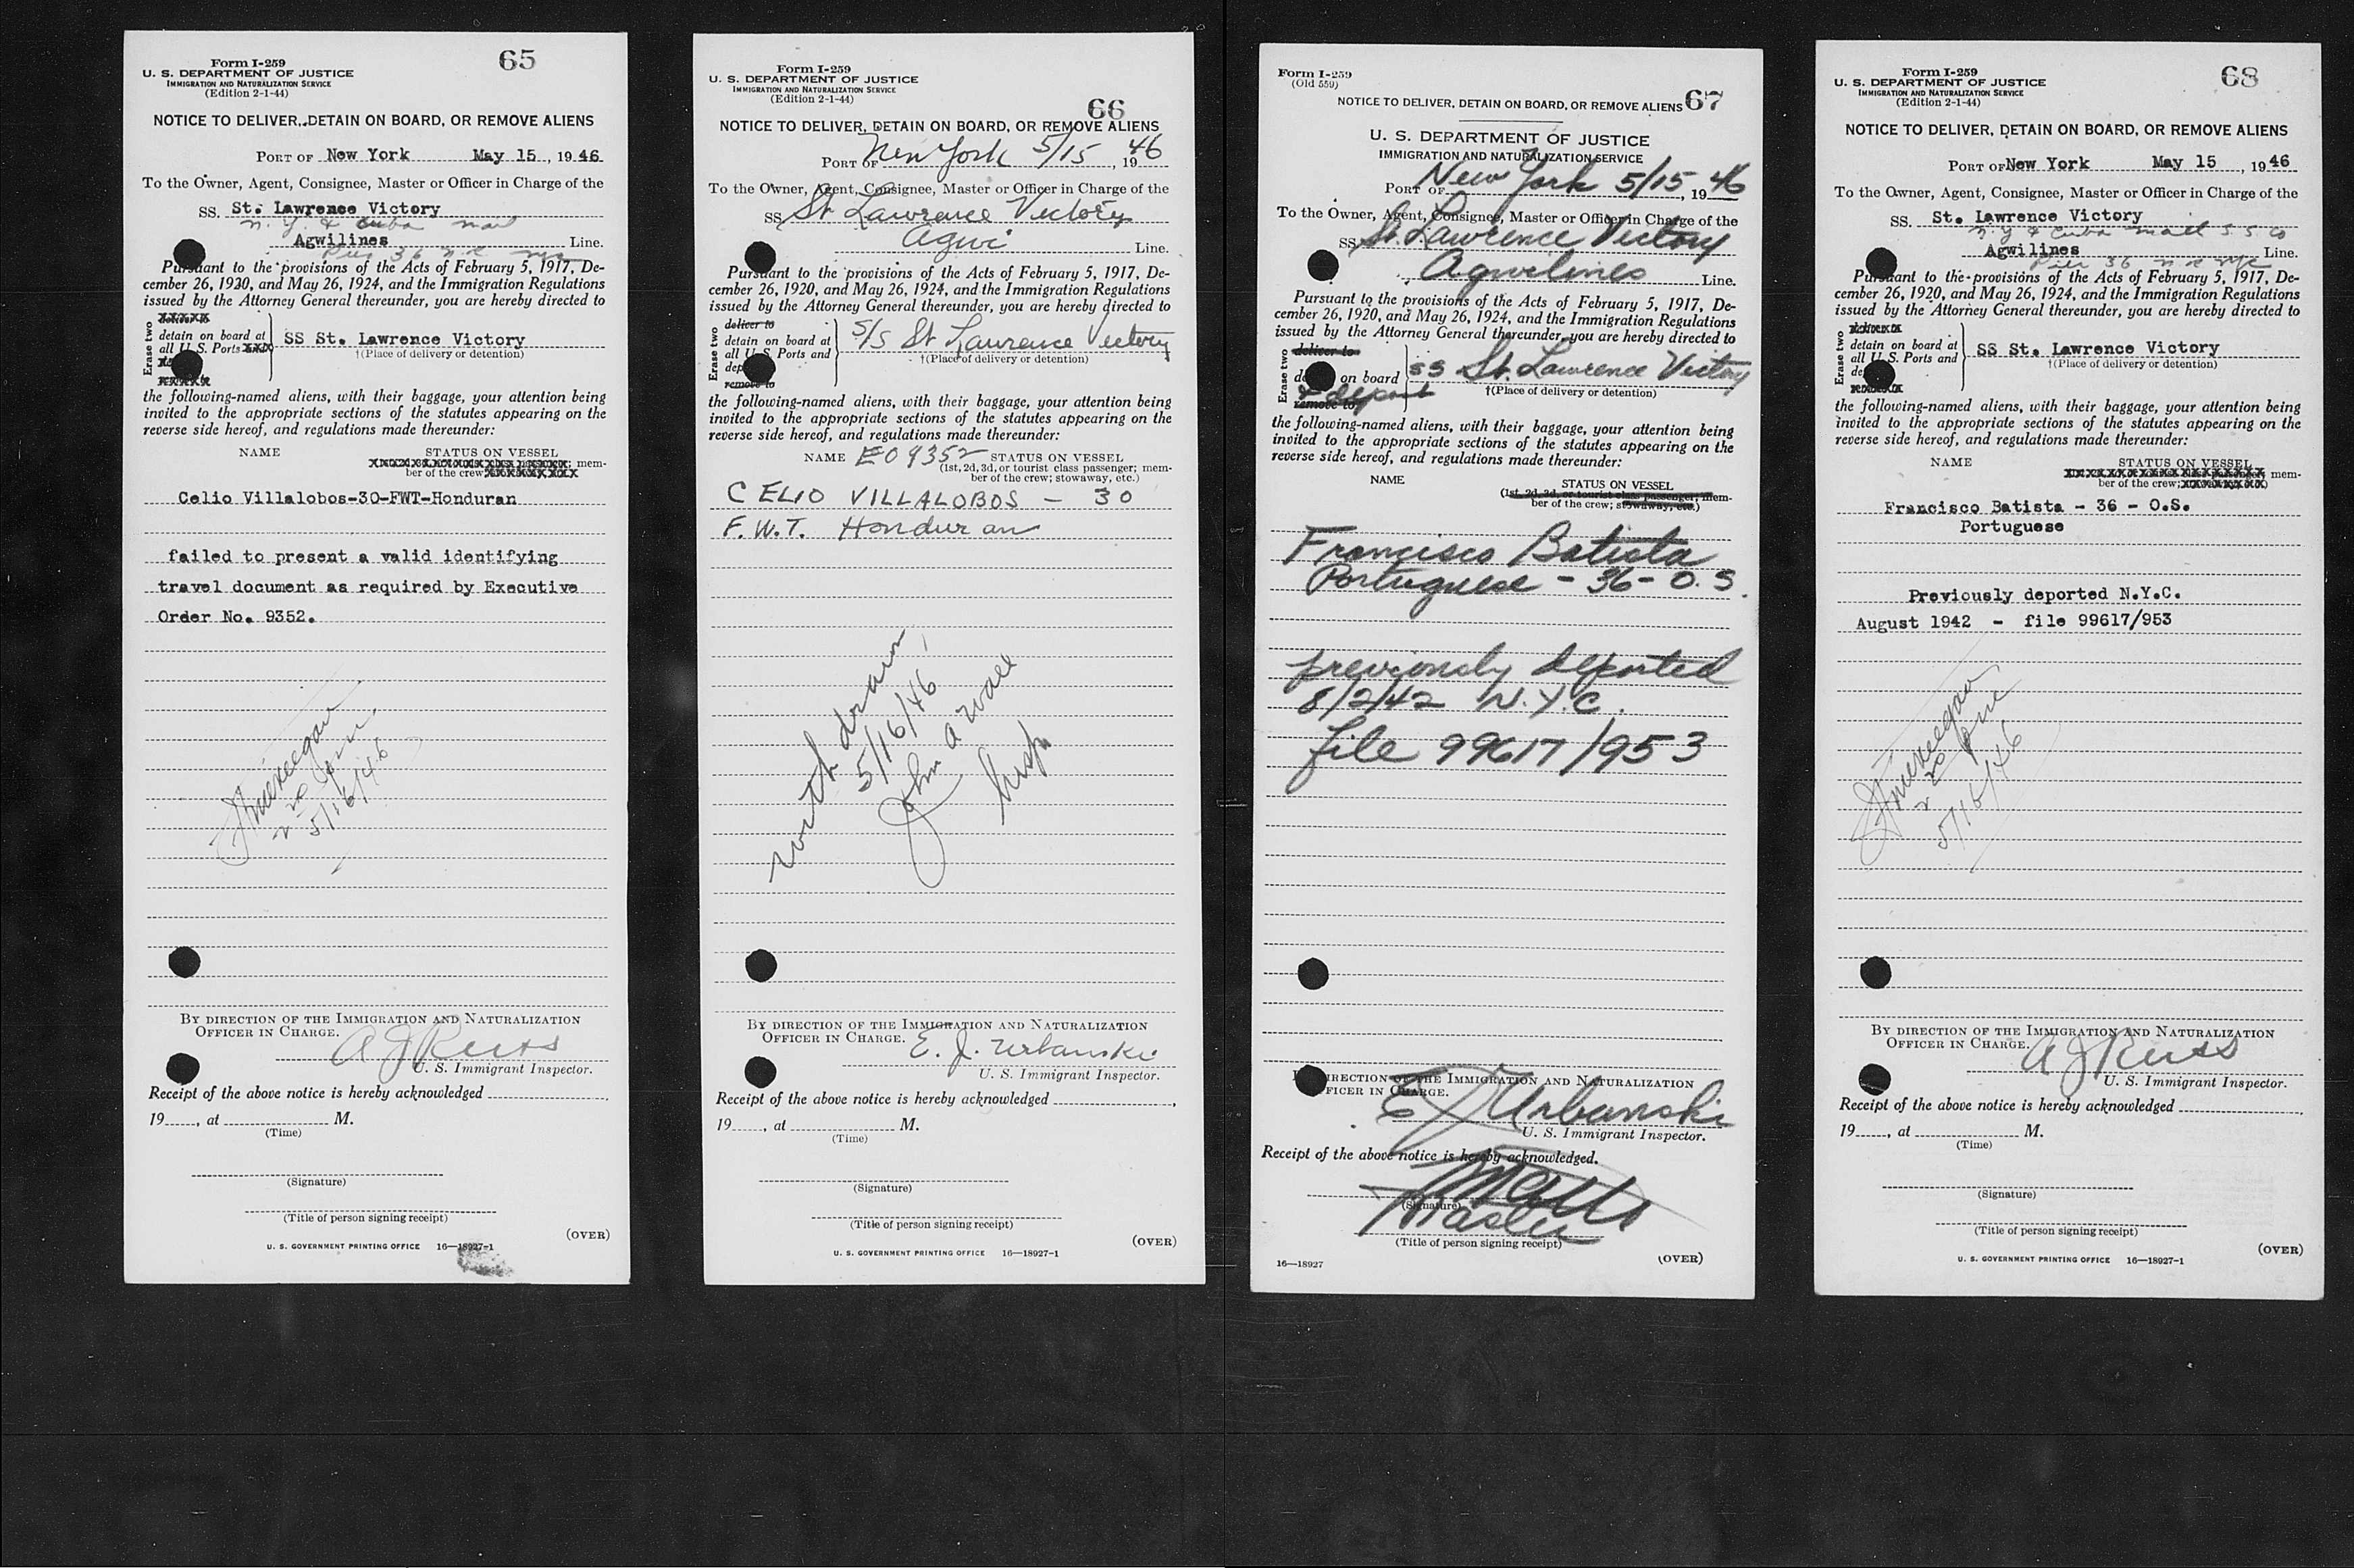 65
Form I-259
U. S. DEPARTMENT OF JUSTICE
IMMIGRATION AND NATURALIZATION SERVICE
(Edition 2-1-44)
NOTICE TO DELIVER, DETAIN ON BOARD, OR REMOVE ALIENS
PORT OF New York May 15, 1946
To the Owner, Agent, Consignee, Master or Officer in Charge of the
SS. St. Lawrence Victory
N. Y. & Cuba mail
Agwilines Line.
Pier 36 N R
Pursuant to the provisions of the Acts of February 5, 1917, De-
cember 26, 1930, and May 26, 1924, and the Immigration Regulations
issued by the Attorney General thereunder, you are hereby directed to
Erase two
deliver to
detain on board at
all U. S. Ports
SS St. Lawrence Victory
†(Place of delivery or detention)
the following-named aliens, with their baggage, your attention being
invited to the appropriate sections of the statutes appearing on the
reverse side hereof, and regulations made thereunder:
NAME STATUS ON VESSEL
mem-
ber of the crew;
Celio Villalobos-30-FWT-Honduran
failed to present a valid identifying
travel document as required by Executive
Order No. 9352.
5/16/46
BY DIRECTION OF THE IMMIGRATION AND NATURALIZATION
OFFICER IN CHARGE.
A J Reiss
U. S. Immigrant Inspector.
Receipt of the above notice is hereby acknowledged
19, at M.
(Time)
(Signature)
(Title of person signing receipt)
(OVER)
U. S. GOVERNMENT PRINTING OFFICE 16—18927-1
66
Form I-259
U. S. DEPARTMENT OF JUSTICE
IMMIGRATION AND NATURALIZATION SERVICE
(Edition 2-1-44)
NOTICE TO DELIVER, DETAIN ON BOARD, OR REMOVE ALIENS
PORT OF New York 5/15, 1946
To the Owner, Agent, Consignee, Master or Officer in Charge of the
SS St Lawrence Victory
Agwi Line.
Pursuant to the provisions of the Acts of February 5, 1917, De-
cember 26, 1920, and May 26, 1924, and the Immigration Regulations
issued by the Attorney General thereunder, you are hereby directed to
Erase two
deliver to
detain on board at
all U. S. Ports and
dep
remove to
S/S St Lawrence Victory
†(Place of delivery or detention)
the following-named aliens, with their baggage, your attention being
invited to the appropriate sections of the statutes appearing on the
reverse side hereof, and regulations made thereunder:
NAME EO 9352 STATUS ON VESSEL
(1st, 2d, 3d, or tourist class passenger; mem-
ber of the crew; stowaway, etc.)
CELIO VILLALOBOS - 30
F.W.T. Honduran
withdrawn
5/16/46
John A Wall
Insp
BY DIRECTION OF THE IMMIGRATION AND NATURALIZATION
OFFICER IN CHARGE.
E. J. Urbanski
U. S. Immigrant Inspector.
Receipt of the above notice is hereby acknowledged
19, at M.
(Time)
(Signature)
(Title of person signing receipt)
(OVER)
U. S. GOVERNMENT PRINTING OFFICE 16—18927-1
Form I-259
(Old 559)
NOTICE TO DELIVER, DETAIN ON BOARD, OR REMOVE ALIENS 67
U. S. DEPARTMENT OF JUSTICE
IMMIGRATION AND NATURALIZATION SERVICE
PORT OF New York 5/15, 1946
To the Owner, Agent, Consignee, Master or Officer in Charge of the
SS St. Lawrence Victory
Agwilines Line.
Pursuant to the provisions of the Acts of February 5, 1917, De-
cember 26, 1920, and May 26, 1924, and the Immigration Regulations
issued by the Attorney General thereunder, you are hereby directed to
Erase two
deliver to
on board
& deport
remove to
SS St. Lawrence Victory
†(Place of delivery or detention)
the following-named aliens, with their baggage, your attention being
invited to the appropriate sections of the statutes appearing on the
reverse side hereof, and regulations made thereunder:
NAME STATUS ON VESSEL
(1st, 2d, 3d, or tourist class passenger; mem-
ber of the crew; stowaway, etc.)
Francisco Batista
Portuguese - 36 - O.S.
previously deported
8/2/42 N.Y.C.
file 99617/953
DIRECTION OF THE IMMIGRATION AND NATURALIZATION
OFFICER IN CHARGE.
E J Urbanski
U. S. Immigrant Inspector.
Receipt of the above notice is hereby acknowledged.
(Signature)
Master
(Title of person signing receipt)
16—18927
(OVER)
68
Form I-259
U. S. DEPARTMENT OF JUSTICE
IMMIGRATION AND NATURALIZATION SERVICE
(Edition 2-1-44)
NOTICE TO DELIVER, DETAIN ON BOARD, OR REMOVE ALIENS
PORT OF New York May 15, 1946
To the Owner, Agent, Consignee, Master or Officer in Charge of the
SS. St. Lawrence Victory
N. Y & Cuba mail S. S Co
Agwilines Line.
Pier 36 N R
Pursuant to the provisions of the Acts of February 5, 1917, De-
cember 26, 1920, and May 26, 1924, and the Immigration Regulations
issued by the Attorney General thereunder, you are hereby directed to
Erase two
detain on board at
all U. S. Ports and
de
SS St. Lawrence Victory
†(Place of delivery or detention)
the following-named aliens, with their baggage, your attention being
invited to the appropriate sections of the statutes appearing on the
reverse side hereof, and regulations made thereunder:
NAME STATUS ON VESSEL
mem-
ber of the crew;
Francisco Batista - 36 - O.S.
Portuguese
Previously deported N.Y.C.
August 1942 - file 99617/953
5/16/46
BY DIRECTION OF THE IMMIGRATION AND NATURALIZATION
OFFICER IN CHARGE.
A J Reiss
U. S. Immigrant Inspector.
Receipt of the above notice is hereby acknowledged
19, at M.
(Time)
(Signature)
(Title of person signing receipt)
(OVER)
U. S. GOVERNMENT PRINTING OFFICE 16—18927-1